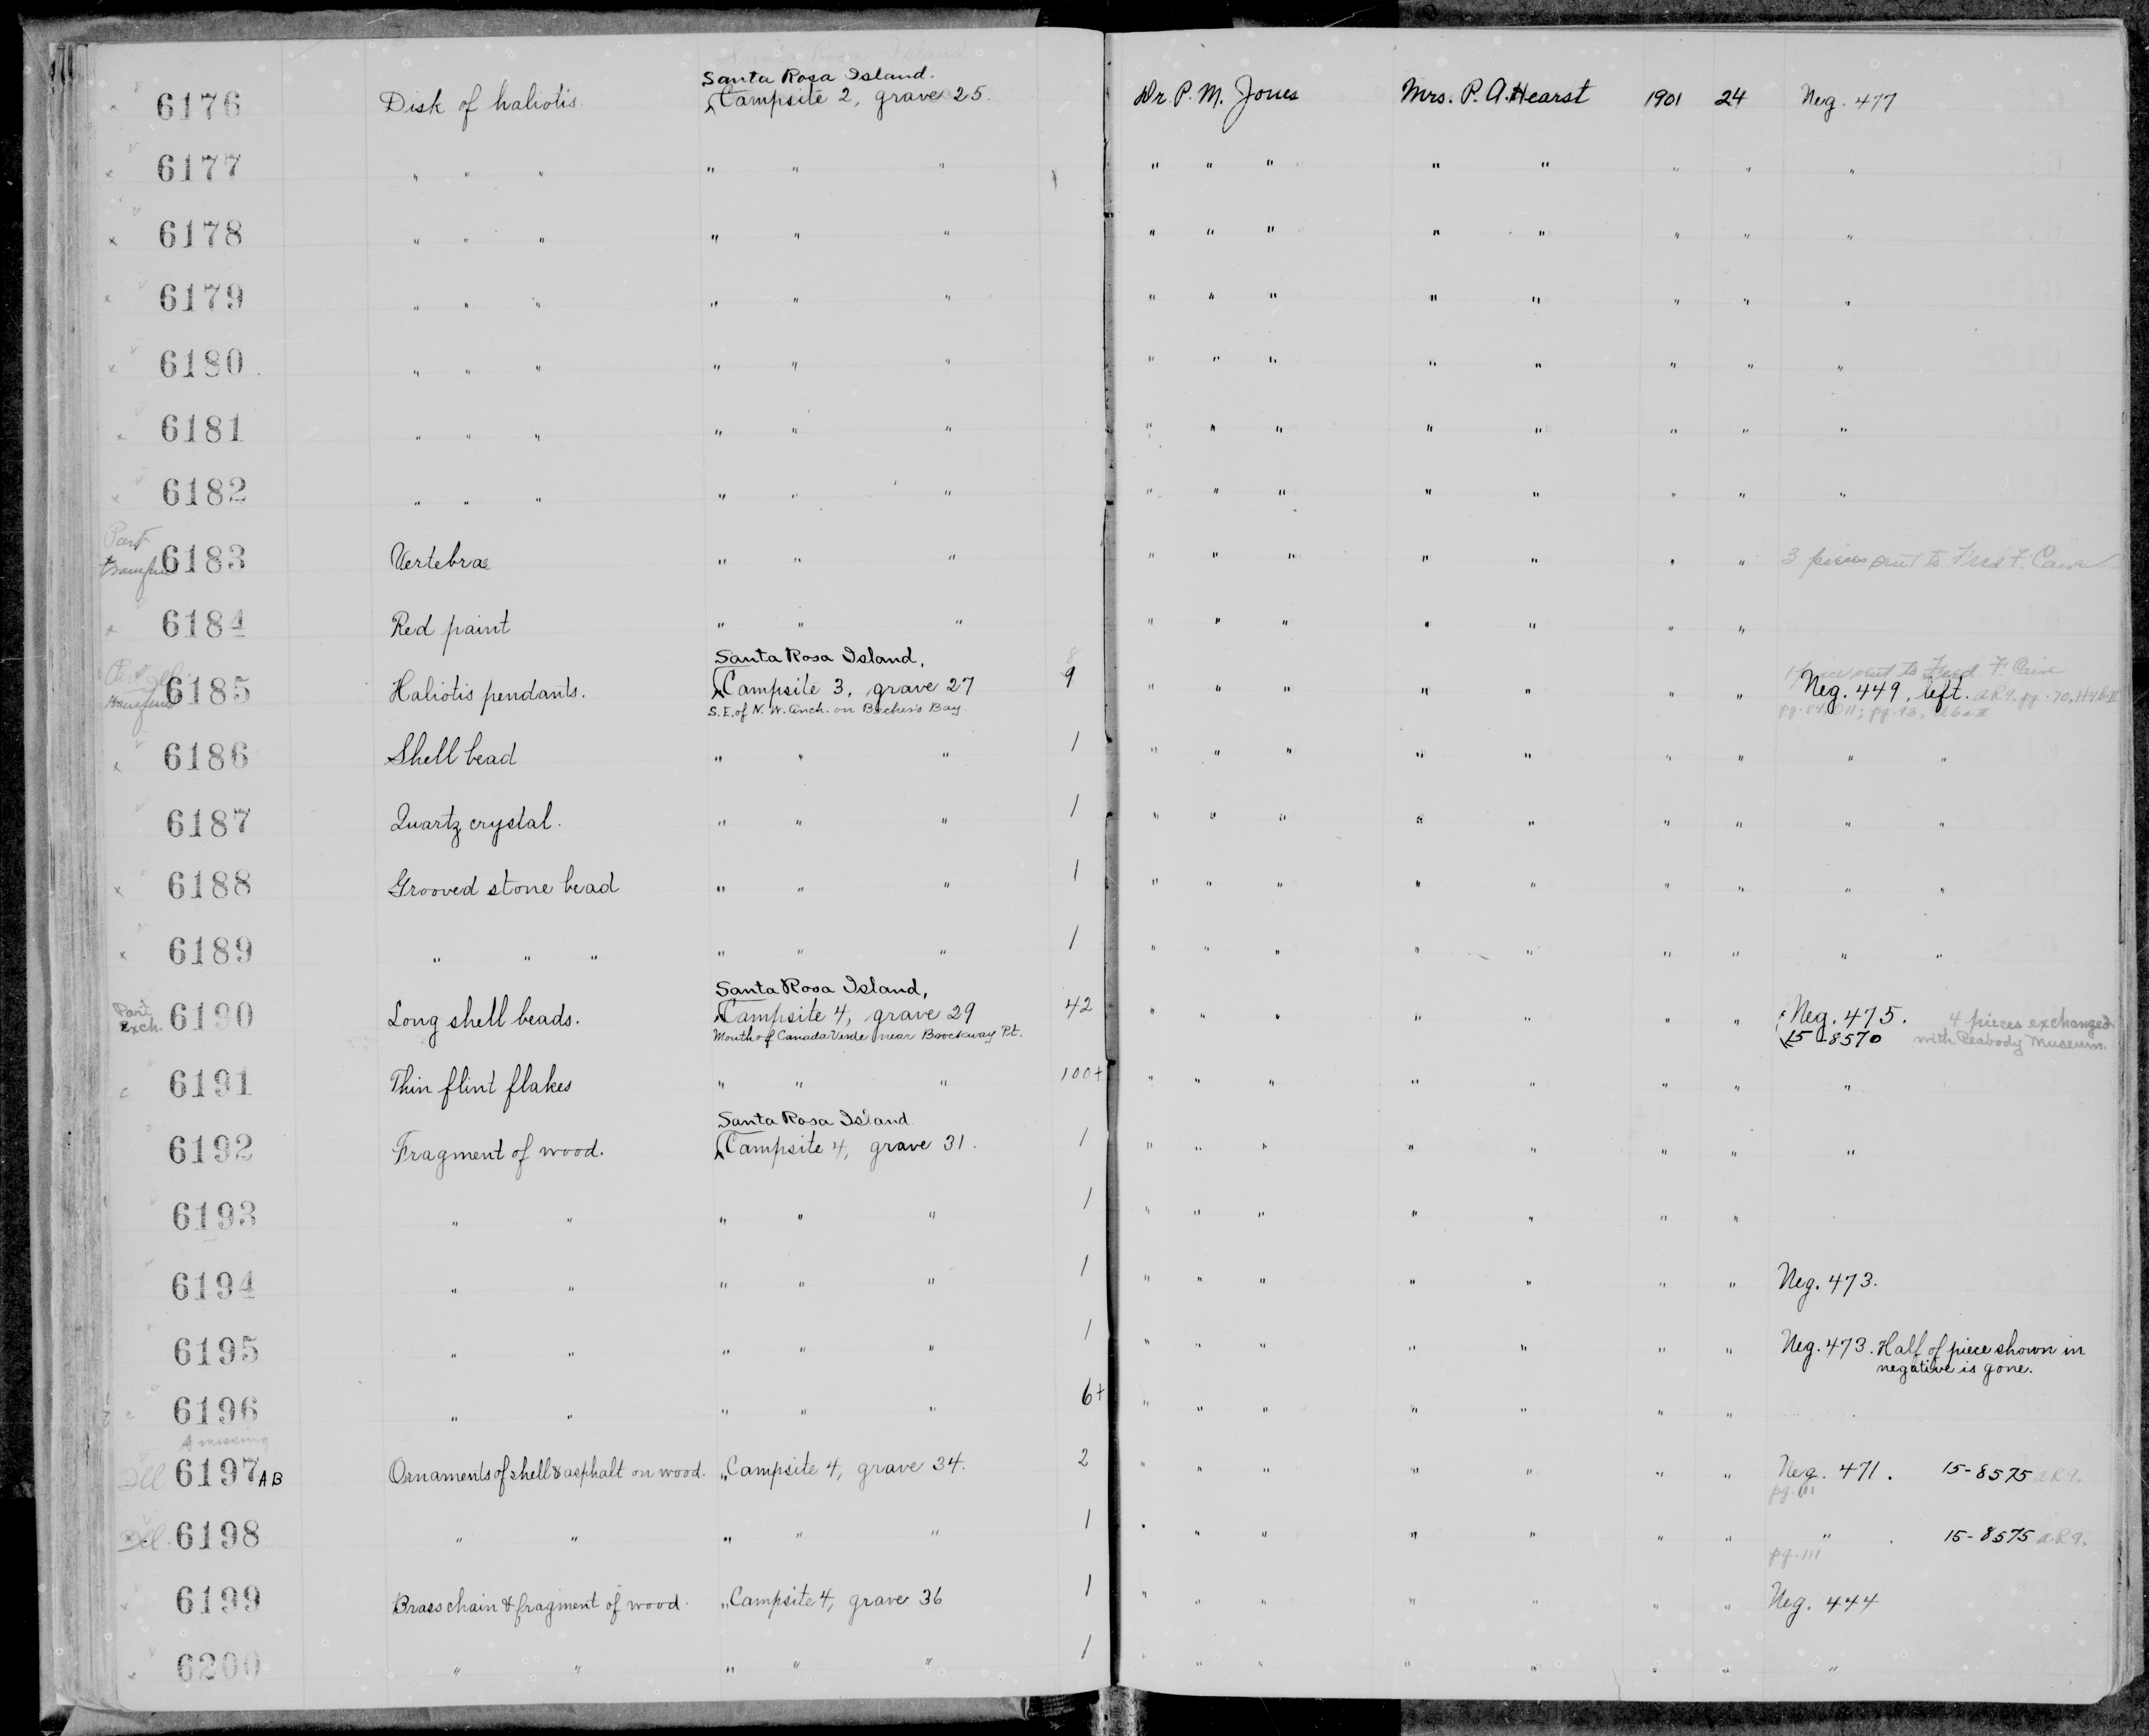 Santa Rosa Island.
6176 Disk of haliotis. Campsite 2, grave 25. Dr. P. M. Jones Mrs. P. A. Hearst 1901 24 Neg. 477
6177 " " " " " " " " " " " " " "
6178 " " " " " " " " " " " " " "
6179 " " " " " " " " " " " " " "
6180 " " " " " " " " " " " " " "
6181 " " " " " " " " " " " " " "
6182 " " " " " " " " " " " " " "
Part
6183 Vertebrae " " " " " " " " " " 3 pieces sent to Fred F.
6184 Red paint " " " " " " " " " "
Santa Rosa Island, 8
sent to Fred F.
6185 Haliotis pendants. Campsite 3, grave 27 9 " " " " " " " Neg. 449, left. A R 9. pg. 70,
S.E. of N. W. Anch. on Becher's Bay
6186 Shell bead " " " 1 " " " " " " " " "
6187 Quartz crystal. " " " 1 " " " " " " " " "
6188 Grooved stone bead " " " 1 " " " " " " " " "
6189 " " " " " " 1 " " " " " " " " "
Santa Rosa Island,
Part Exch. 6190 Long shell beads. Campsite 4, grave 29 42 " " " " " " " Neg. 475. 4 pieces exchanged
Mouth of Canada Verde near Brockway Pt. 15-8570 with Peabody Museum.
c 6191 Thin flint flakes " " " 100+ " " " " " " " "
Santa Rosa Island
6192 Fragment of wood. Campsite 4, grave 31. 1 " " " " " " " "
6193 " " " " " 1 " " " " " " "
6194 " " " " " 1 " " " " " " " Neg. 473.
6195 " " " " " 1 " " " " " " " Neg. 473. Half of piece shown in
negative is gone.
c 6196 " " " " " 6+ " " " " " " "
A missing
Ill 6197 AB Ornaments of shell & asphalt on wood. " Campsite 4, grave 34. 2 " " " " " " " Neg. 471. 15-8575 A R 9.
pg. 111
Ill. 6198 " " " " " 1 " " " " " " " " 15-8575 A. R 9.
pg. 111
6199 Brass chain & fragment of wood. " Campsite 4, grave 36 1 " " " " " " " Neg. 444
6200 " " " " " 1 " " " " " " " "